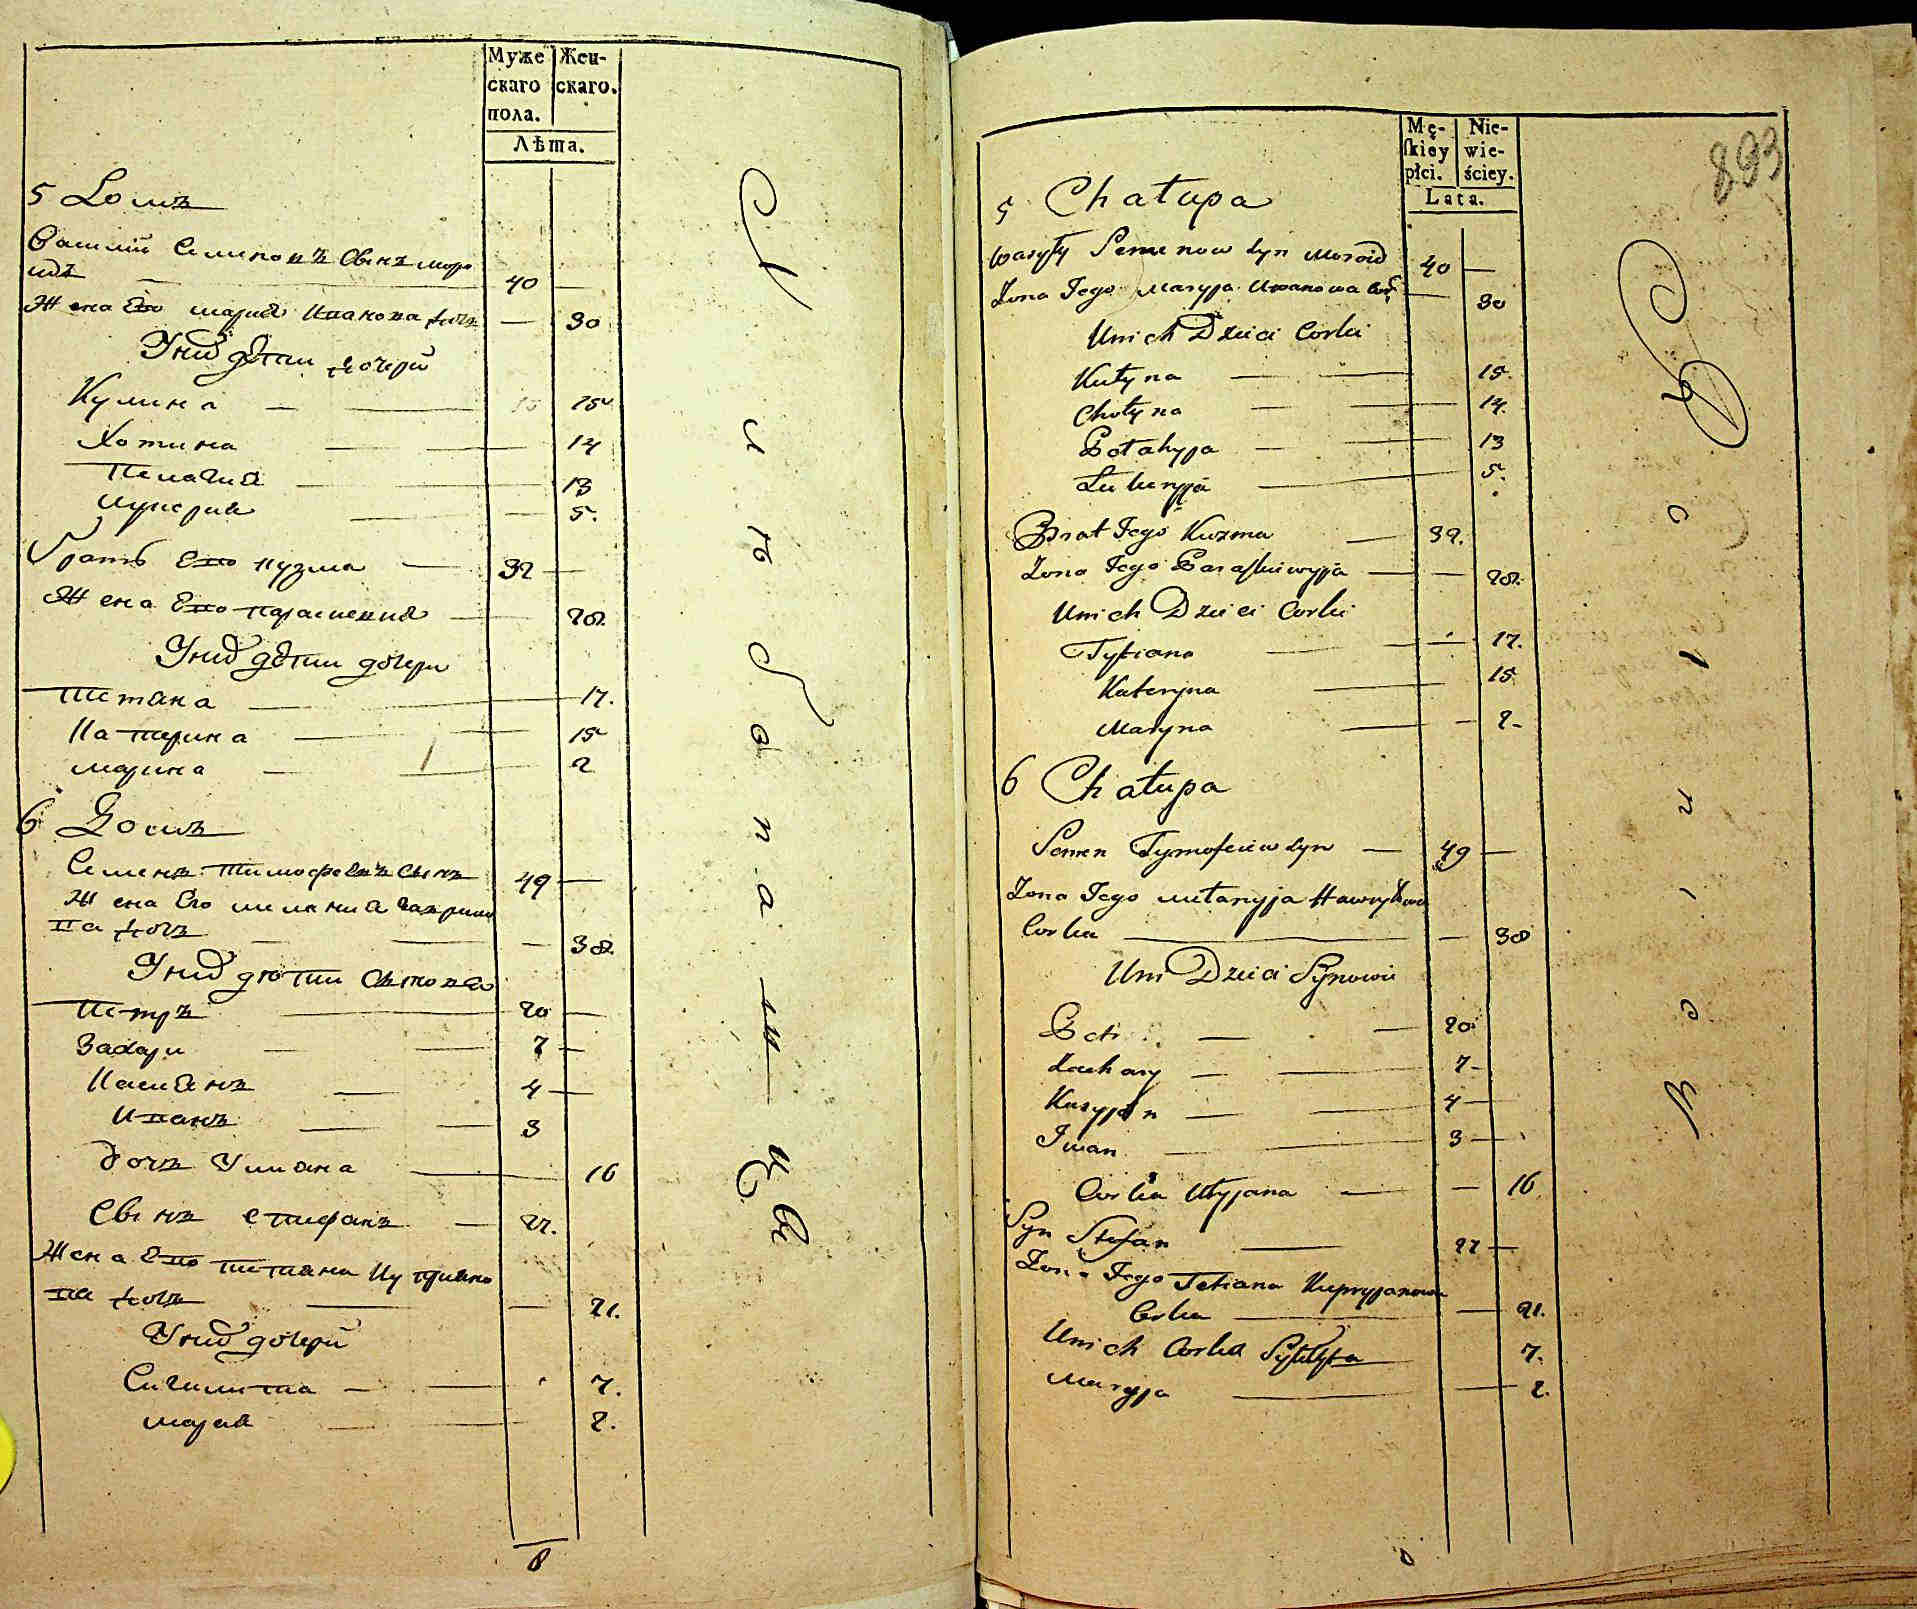 Муже
скаго
пола.
Жен-
скаго.
Лѣта.
5 Домъ
Василий Семеновъ Сынъ моро
идъ — 40 —
Жена Его мария Иванова дочь — 30
Уних дѣти дочери
Кулина — 15
Хотина — 14
Пелагия — 13
Лукерия — 5.
братъ Его кузма — 32 —
Жена Его параскевия — 28.
Уних дѣти дочери
Тетяна — 17.
Катерина — 15
марина — 2
6 Домъ
Семенъ Тимофеевъ Сынъ 49 —
Жена Его мелания гаврило
ва дочь — 38.
Уних дѣти Сыновя
Петръ — 20 —
Захари — 7 —
Касиянъ — 4 —
Иванъ — 3
дочь Улияна — 16
Сынъ стефанъ — 27.
Жена Его тетияна Куприяно
ва дочь — 21.
Уних дочери
— 7.
мария — 2.
8
893
Mę-
skiey
płci.
Nie-
wie-
ściey.
Lata.
5 Chałupa
Wasyły Semenow syn Moroid 40 —
Zona Jego Maryja Iwanowa Cor: — 30
Unich Dzieci Corki
Kułyna — 15.
Chotyna — 14.
Pełahyja — 13
Łukeryja — 5.
Brat Jego Kuzma — 32.
Zona Jego Paraskiwyja — 28.
Unich Dzieci Corki
Tytiana — 17.
Kateryna — 15
Maryna — 2-
6 Chałupa
Semen Tymofeiew syn — 49 —
Zona Jego Mełanyja Hawryłowa
Corka — 38
Uni Dzieci Synowie
Petr — 20
Zachary — 7-
Kasyjan — 4 —
Iwan — 3 —
Corka Ułyjana — 16
Syn Stefan — 27 —
Zona Jego Tetiana Kupryjanowa
Corka — 21.
Unich Corka — 7.
Maryja — 2.